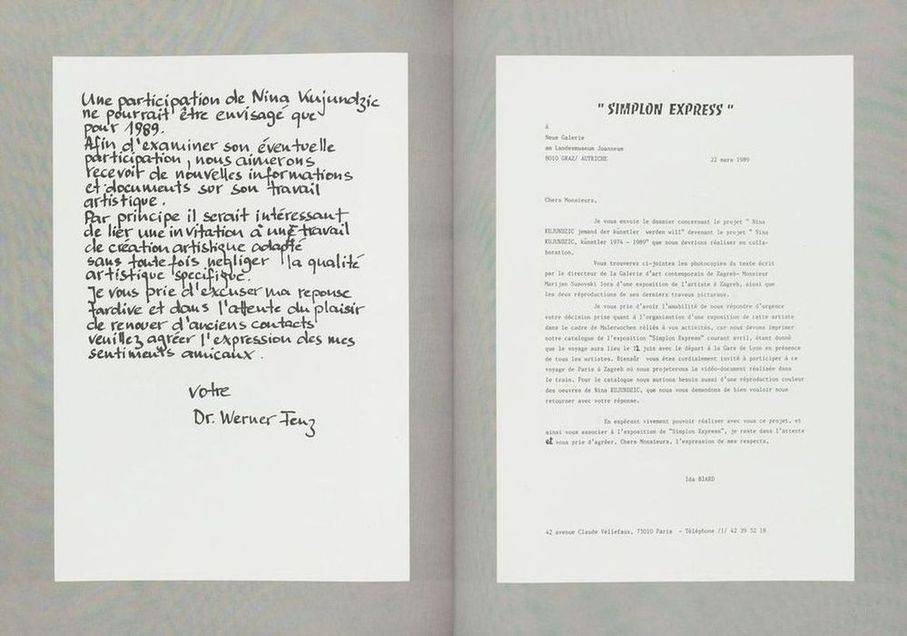 Une participation de Nina Kujundzic
ne pourrait être envisagé que
pour 1989.
Afin d'examiner son éventuelle
participation, nous aimerons
recevoir de nouvelles informations
et documents sur son travail
artistique.
Par principe il serait intéressant
de lier une invitation à une travail
de création artistique adapté
sans toute fois négliger la qualité
artistique specifique.
Je vous prie d'excuser ma reponse
tardive et dans l'attente du plaisir
de renouer d'anciens contacts
veuillez agréer l'expression des mes
sentiments amicaux.
votre
Dr. Werner Fenz
" SIMPLON EXPRESS "
à
Neue Galerie
am Landesmuseum Joanneum
8010 GRAZ/ AUTRICHE
22 mars 1989
Chers Monsieurs,
Je vous envoie le dossier concernant le projet " Nina
KUJUNDZIC jemand der künstler werden will" devenant le projet " Nina
KUJUNDZIC, künstler 1974 - 1989" que nous devrions réaliser en colla-
boration.
Vous trouverez ci-jointes les photocopies du texte écrit
par le directeur de la Galerie d'art contemporain de Zagreb- Monsieur
Marijan Susovski lors d'une exposition de l'artiste à Zagreb, ainsi que
les deux réproductions de ses derniers travaux picturaux.
Je vous prie d'avoir l'amabilité de nous répondre d'urgence
votre décision prise quant à l'organisation d'une exposition de cette artiste
dans le cadre de Malerwochen réliés à vos activités, car nous devons imprimer
notre catalogue de l'exposition "Simplon Express" courant avril, étant donné
que le voyage aura lieu le juin avec le départ à la Gare de Lyon en présence
de tous les artistes. Biensûr vous êtes cordialement invité à participer à ce
voyage de Paris à Zagreb où nous projeterons la vidéo-document réalisée dans
le train. Pour le catalogue nous aurions besoin aussi d'une réproduction couleur
des oeuvres de Nina KUJUNDZIC, que nous vous demandons de bien vouloir nous
retourner avec votre réponse.
En espérant vivement pouvoir réaliser avec vous ce projet, et
ainsi vous associer à l'exposition de "Simplon Express", je reste dans l'attente
et vous prie d'agréer, Chers Monsieurs, l'expression de mes respects.
Ida BIARD
42 avenue Claude Vellefaux, 75010 Paris - Téléphone /1/ 42 39 52 18